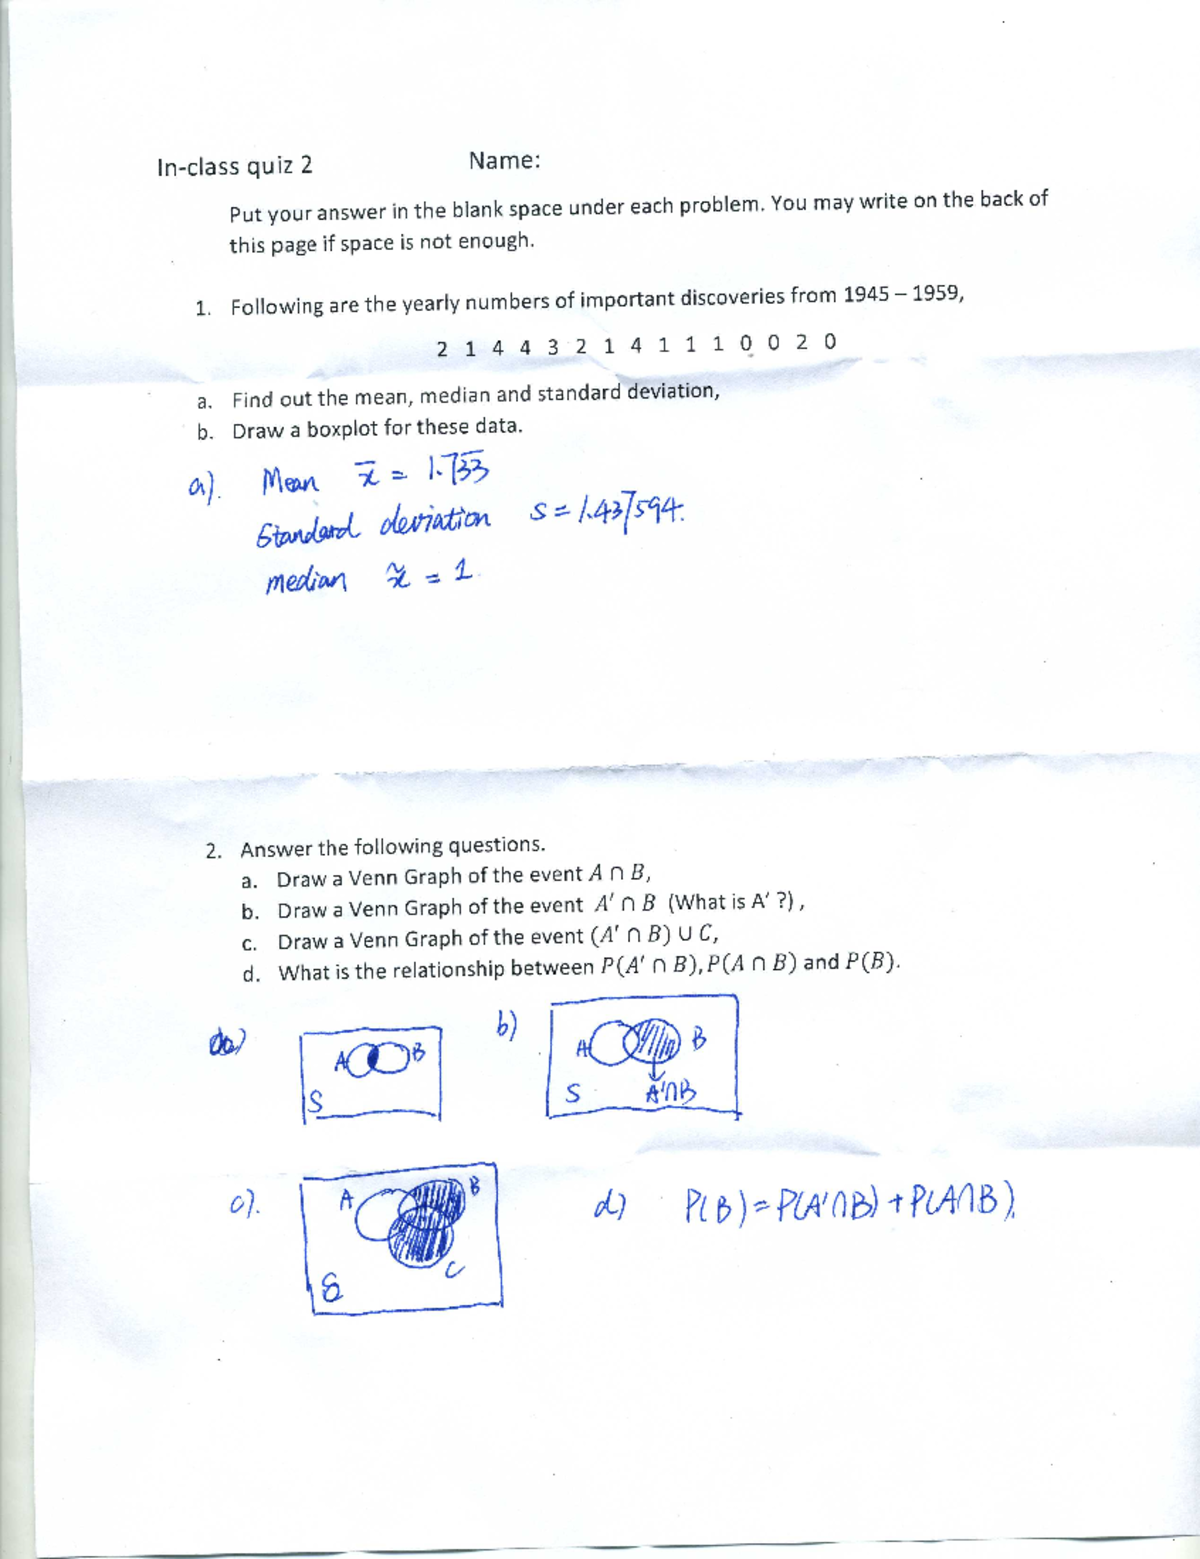 In-class quiz 2 Name:
Put your answer in the blank space under each problem. You may write on the back of
this page if space is not enough.
1. Following are the yearly numbers of important discoveries from 1945 – 1959,
2 1 4 4 3 2 1 4 1 1 1 0 0 2 0
a. Find out the mean, median and standard deviation,
b. Draw a boxplot for these data.
a). Mean x̄ = 1.733
Standard deviation s = 1.437594.
median x̃ = 1.
2. Answer the following questions.
a. Draw a Venn Graph of the event A ∩ B,
b. Draw a Venn Graph of the event A′ ∩ B (What is A′ ?),
c. Draw a Venn Graph of the event (A′ ∩ B) ∪ C,
d. What is the relationship between P(A′ ∩ B), P(A ∩ B) and P(B).
a) b)
A B
S
A B
S A'∩B
c). d) P(B) = P(A'∩B) + P(A∩B).
A B
C
S